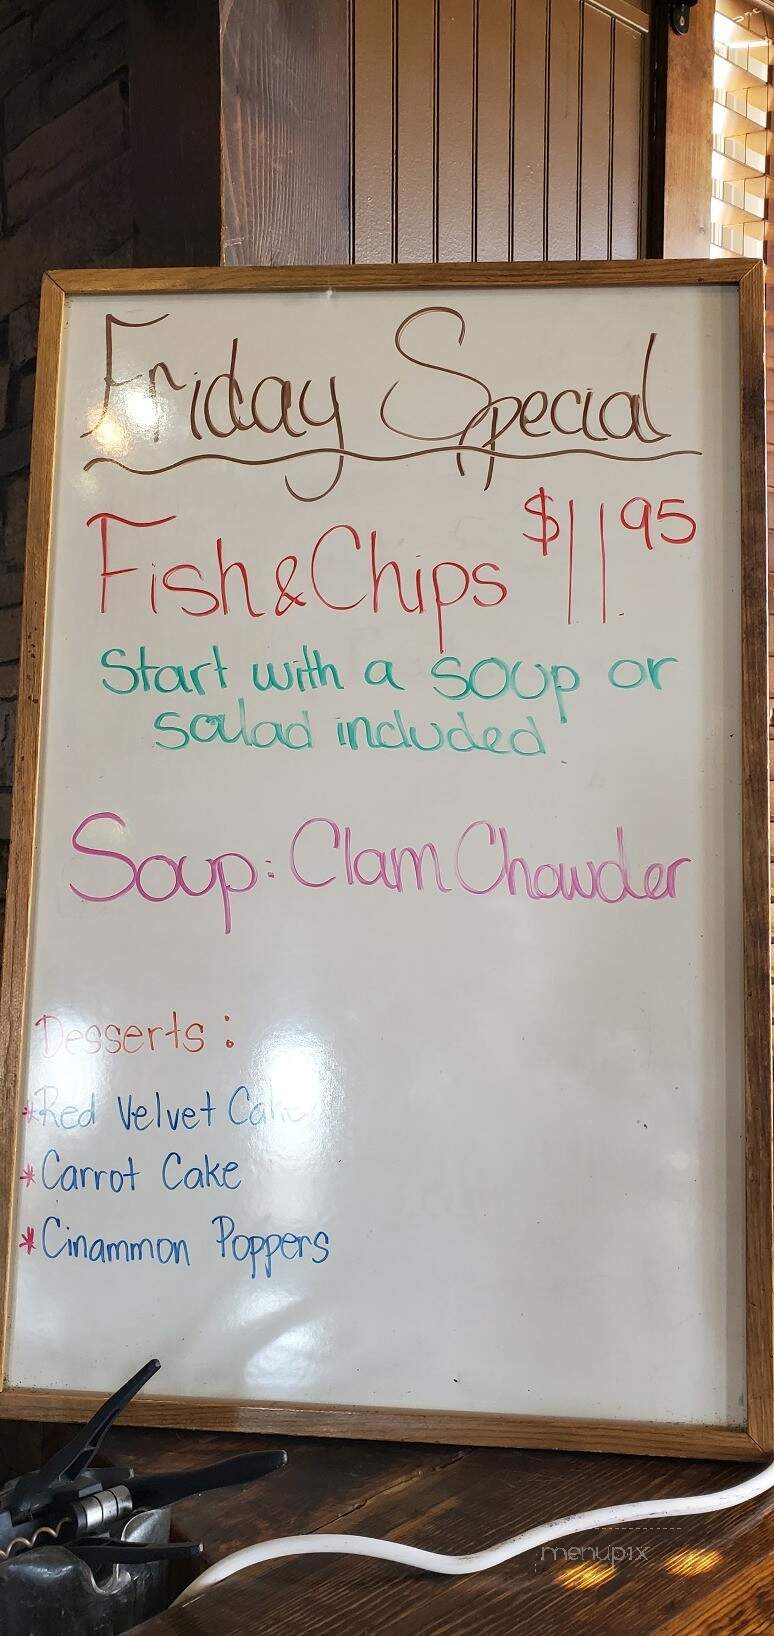 Friday Special
Fish & Chips $11.95
Start with a soup or
salad included
Soup: Clam Chowder
Desserts:
*Red Velvet Cake
*Carrot Cake
*Cinammon Poppers
menupix